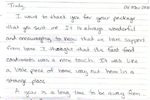 Trudy,
I want to thank you for your package
that you sent us. It is always wonderful
and encouraging to know that we have support
from home. I thought that the fast food
condiments was a nice touch. It was like
a little piece of home way out here in a
strange place.
A year is a long time to be away from